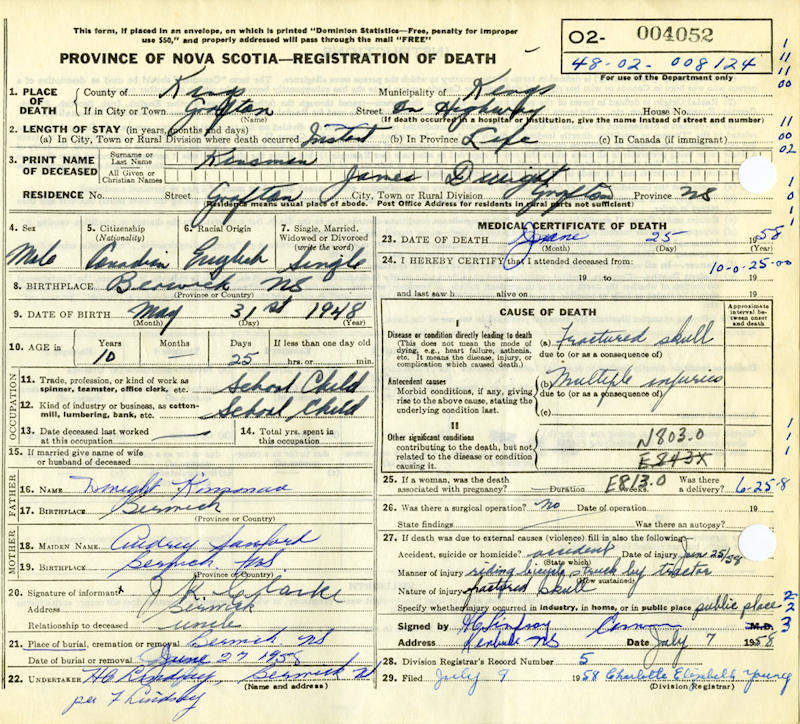 This form, if placed in an envelope, on which is printed "Dominion Statistics—Free, penalty for improper
use $50," and properly addressed will pass through the mail "FREE"
PROVINCE OF NOVA SCOTIA—REGISTRATION OF DEATH
O2- 004052
48-02-008124
For use of the Department only
1. PLACE OF DEATH
County of Kings Municipality of Kings
If in City or Town Grafton Street On Highway House No.
(Name) (If death occurred in a hospital or institution, give the name instead of street and number)
2. LENGTH OF STAY (in years, months and days)
(a) In City, Town or Rural Division where death occurred Instant (b) In Province Life (c) In Canada (if immigrant)
3. PRINT NAME OF DECEASED
Surname or Last Name Kinsman
All Given or Christian Names James Dwight
RESIDENCE No. Street Grafton City, Town or Rural Division Grafton Province NS
(Residence means usual place of abode. Post Office Address for residents in rural parts not sufficient)
4. Sex Male
5. Citizenship (Nationality) Canadian
6. Racial Origin English
7. Single, Married, Widowed or Divorced (write the word) Single
8. BIRTHPLACE Berwick NS
(Province or Country)
9. DATE OF BIRTH May 31st 1948
(Month) (Day) (Year)
10. AGE in Years 10 Months — Days 25 If less than one day old
hrs. or min.
OCCUPATION
11. Trade, profession, or kind of work as spinner, teamster, office clerk, etc. School Child
12. Kind of industry or business, as cotton-mill, lumbering, bank, etc. School Child
13. Date deceased last worked at this occupation —
14. Total yrs. spent in this occupation
15. If married give name of wife or husband of deceased
FATHER
16. NAME Dwight Kinsman
17. BIRTHPLACE Berwick
(Province or Country)
MOTHER
18. MAIDEN NAME Audrey Sanford
19. BIRTHPLACE Berwick NS
(Province or Country)
20. Signature of informant x J K Clarke
Address Berwick
Relationship to deceased uncle
21. Place of burial, cremation or removal Berwick NS
Date of burial or removal June 27 1958
22. UNDERTAKER H C Lindsay, Berwick N
(Name and address)
per F Lindsay
MEDICAL CERTIFICATE OF DEATH
23. DATE OF DEATH June 25 1958
(Month) (Day) (Year)
24. I HEREBY CERTIFY that I attended deceased from:
10-0-25-00
19 to 19
and last saw h alive on 19
CAUSE OF DEATH
Approximate interval between onset and death
I
Disease or condition directly leading to death
(This does not mean the mode of dying, e.g., heart failure, asthenia, etc. It means the disease, injury, or complication which caused death.)
(a) Fractured skull
due to (or as a consequence of)
Antecedent causes
Morbid conditions, if any, giving rise to the above cause, stating the underlying condition last.
(b) Multiple injuries
due to (or as a consequence of)
(c)
II
Other significant conditions
contributing to the death, but not related to the disease or condition causing it.
N803.0
E843X
E813.0
25. If a woman, was the death associated with pregnancy? — Duration weeks. Was there a delivery? 6-25-8
26. Was there a surgical operation? no Date of operation 19
State findings Was there an autopsy?
27. If death was due to external causes (violence) fill in also the following:
Accident, suicide or homicide? accident Date of injury Jun 25/58
(State which)
Manner of injury riding bicycle struck by tractor
(How sustained)
Nature of injury fractured skull
Specify whether injury occurred in industry, in home, or in public place public place
Signed by M.D.
Address Kentville NS Date July 7 1958
28. Division Registrar's Record Number 5
29. Filed July 9 1958 Charlotte Elizabeth Young
(Division Registrar)